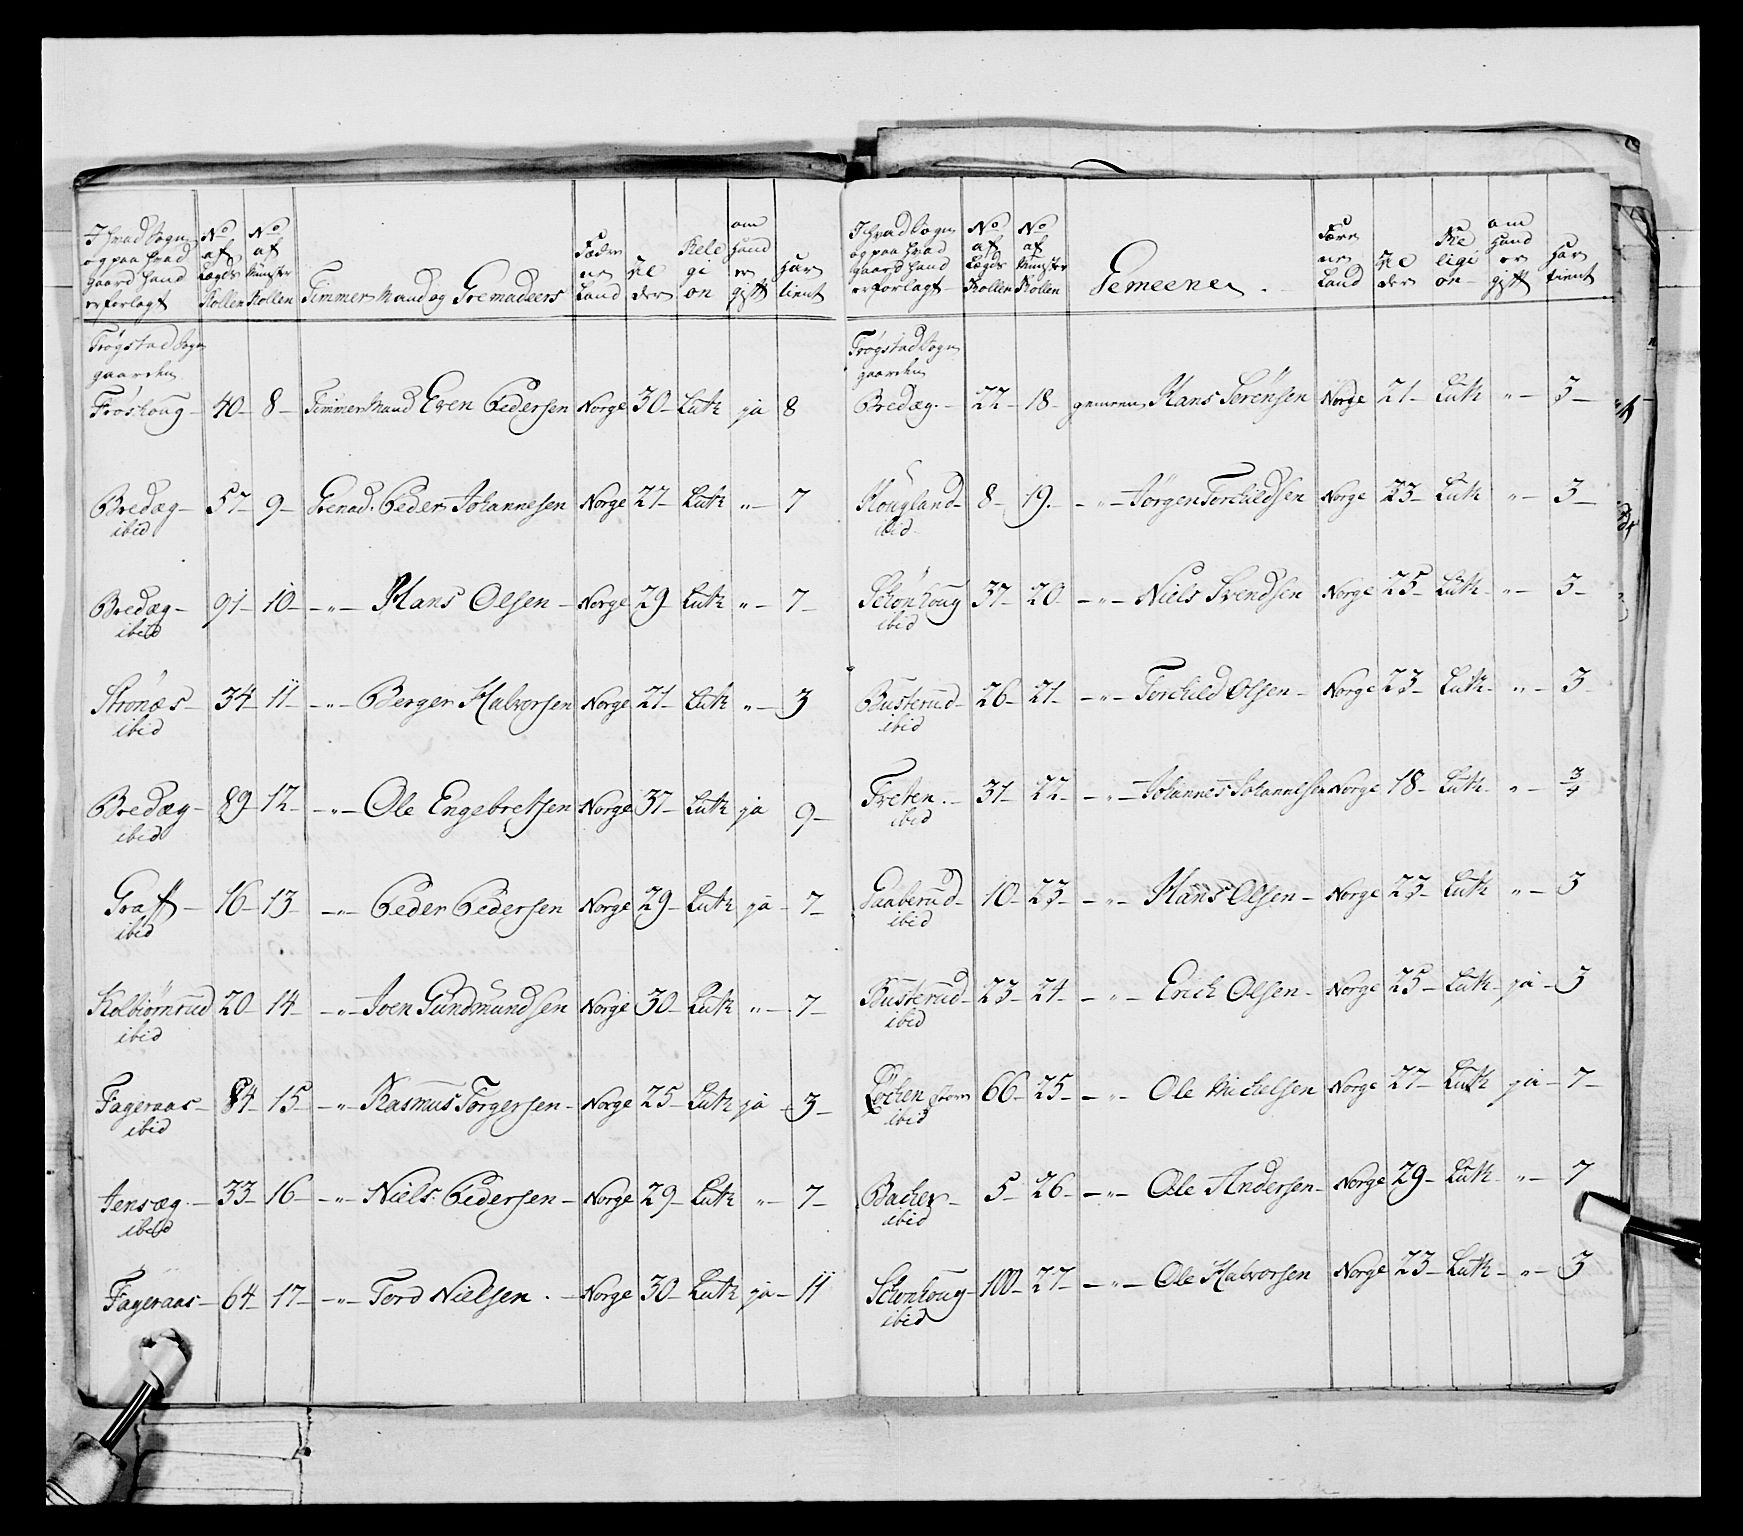 I hvad Sogn og paa hvad gaard hand er forlagt | No af Lægds Rollen | No af Munster Rollen | Timmermand og Grenadeers | Fædernes Land | Alder | Religion | om hand er gift | har tient
Trøgstad Sogn
gaarden
Frøshoug - 40 - 8 - Timmermand Even Pedersen Norge 30 - Luth ja 8
Bredæg - 57 - 9 - Grenad. Peder Johannesen Norge 27 - Luth " - 7
ibid
Bredæg - 91 - 10 - - " - Hans Olsen - Norge 29 - Luth " - 7 -
ibid
Strønæs - 34 - 11 - - " - Berger Halvorsen Norge 21 - Luth " - 3
ibid
Bredæg - 89 - 12 - - " - Ole Engebretsen Norge 37 - Luth ja 9 -
ibid
Graff - 16 - 13 - - " - Peder Pedersen Norge 29 - Luth ja - 7 -
ibid
Kolbiørnrud 20 - 14 - - " - Joen Gundmundsen Norge 30 - Luth " - 7 -
ibid
Fageraas - 84 - 15 - - " - Rasmus Torgersen - Norge 25 - Luth ja - 3 -
ibid
Jensæg - 33 - 16 - - " - Niels Pedersen - Norge 29 - Luth " - 7 -
ibid
Fageraas - 64 - 17 - - " - Tord Nielsen . - Norge 30 - Luth ja - 11
I hvad Sogn og paa hvad gaard hand er forlagt | No af Lægds Rollen | No af Munster Rollen | Gemeene . | Færnernes Land | Alder | Religion | om hand er gift | har tient
Trøgstad Sogn
gaarden
Bredæg - 22 - 18 - gemeen Hans Sørensen Norge 21 - Luth " - 3 -
Hougland - 8 - 19 . - " - Jørgen Torkildsen Norge 23 - Luth " - 3 -
ibid
Schonhoug 37 - 20 - - " - Niels Svendsen Norge 25 - Luth - " - 3 -
ibid
Busterud - 26 - 21 - - " - Torkild Olsen - Norge 23 - Luth - " - 3
ibid
Freten . - 31 - 22 - - " - Johannes Johannesen Norge 18 - Luth - " - 3/4
ibid
Gaaberud - 10 - 23 - - " - Hans Olsen - Norge 23 - Luth " - 3
ibid
Busterud - 23 - 24 - - " - Erich Olsen - Norge 25 - Luth - ja - 3
ibid
Løchen 66 - 25 - - " - Ole Michelsen Norge 27 - Luth ja - 7 -
ibid
Bacher - 5 - 26 - - " - Ole Andersen - Norge 29 - Luth - " - 7
ibid
Schonhoug - 100 - 27 - - " - Ole Halvorsen Norge 23 - Luth - " - 3
ibid